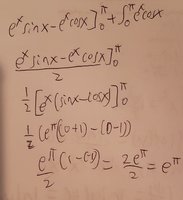 eˣsinx - eˣcosx]₀^π + ∫₀^π eˣcosx
eˣsinx - eˣcosx]₀^π / 2
1/2 [eˣ(sinx - cosx)]₀^π
1/2 (e^π(0+1) - (0-1))
e^π/2 (1-(-1)) = 2e^π/2 = e^π